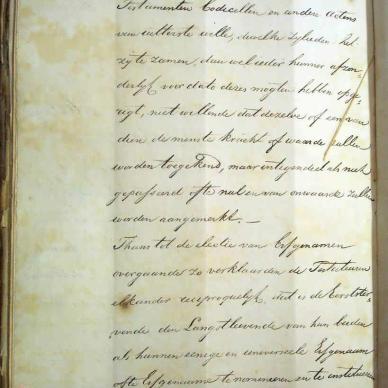 Testamenten Codecillen en andere actens
van uitterste wille, dewelke zijlieden het
zij te zamen, dan wel ieder hunner afzon-
derlijk voor dato dezes mogten hebben opge-
rigt, niet willende dat dezelve of een van
dien de minste kracht of waarde zullen
worden toegekend, maar integendeel als niet
gepasseerd ofte nul en van onwaarde zullen
worden aangemerkt. —
Thans tot de electie van Erfgenamen
overgaande zo verklaarden de Testateuren
elkander reciproquelijk, dat is de Eerstster-
vende den Langstlevende van hun beiden
als hunnen eenige en universeele Erfgenaam
ofte Erfgename te nomineren en te institueren